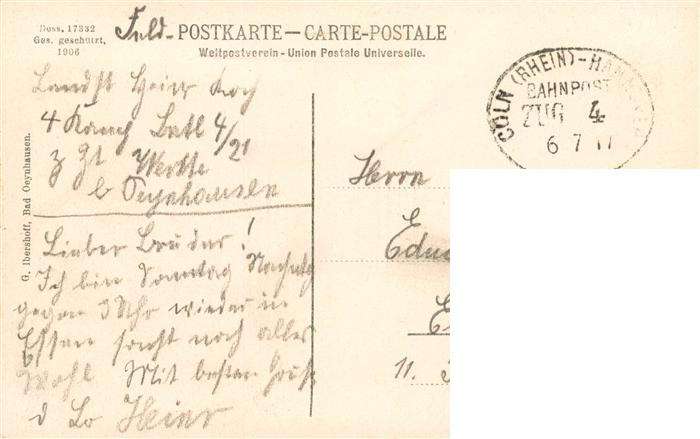 Duss. 17332
Ges. geschützt,
1906
Feld-POSTKARTE — CARTE-POSTALE
Weltpostverein - Union Postale Universelle.
CÖLN (RHEIN)-HANNOVER
BAHNPOST
ZUG 4
6 7 17
G. Ibershoff, Bad Oeynhausen.
Landst Heinr Koch
4 Komp Batl 4/21
z Zt Werste
b Oeynhausen
Lieber Bruder!
Ich bin Sonntag Nachmtg
gegen 3 Uhr wieder in
Essen sonst noch alles
Wohl Mit besten Gruß
d Br Heinr
Herrn
Edu
E
11.